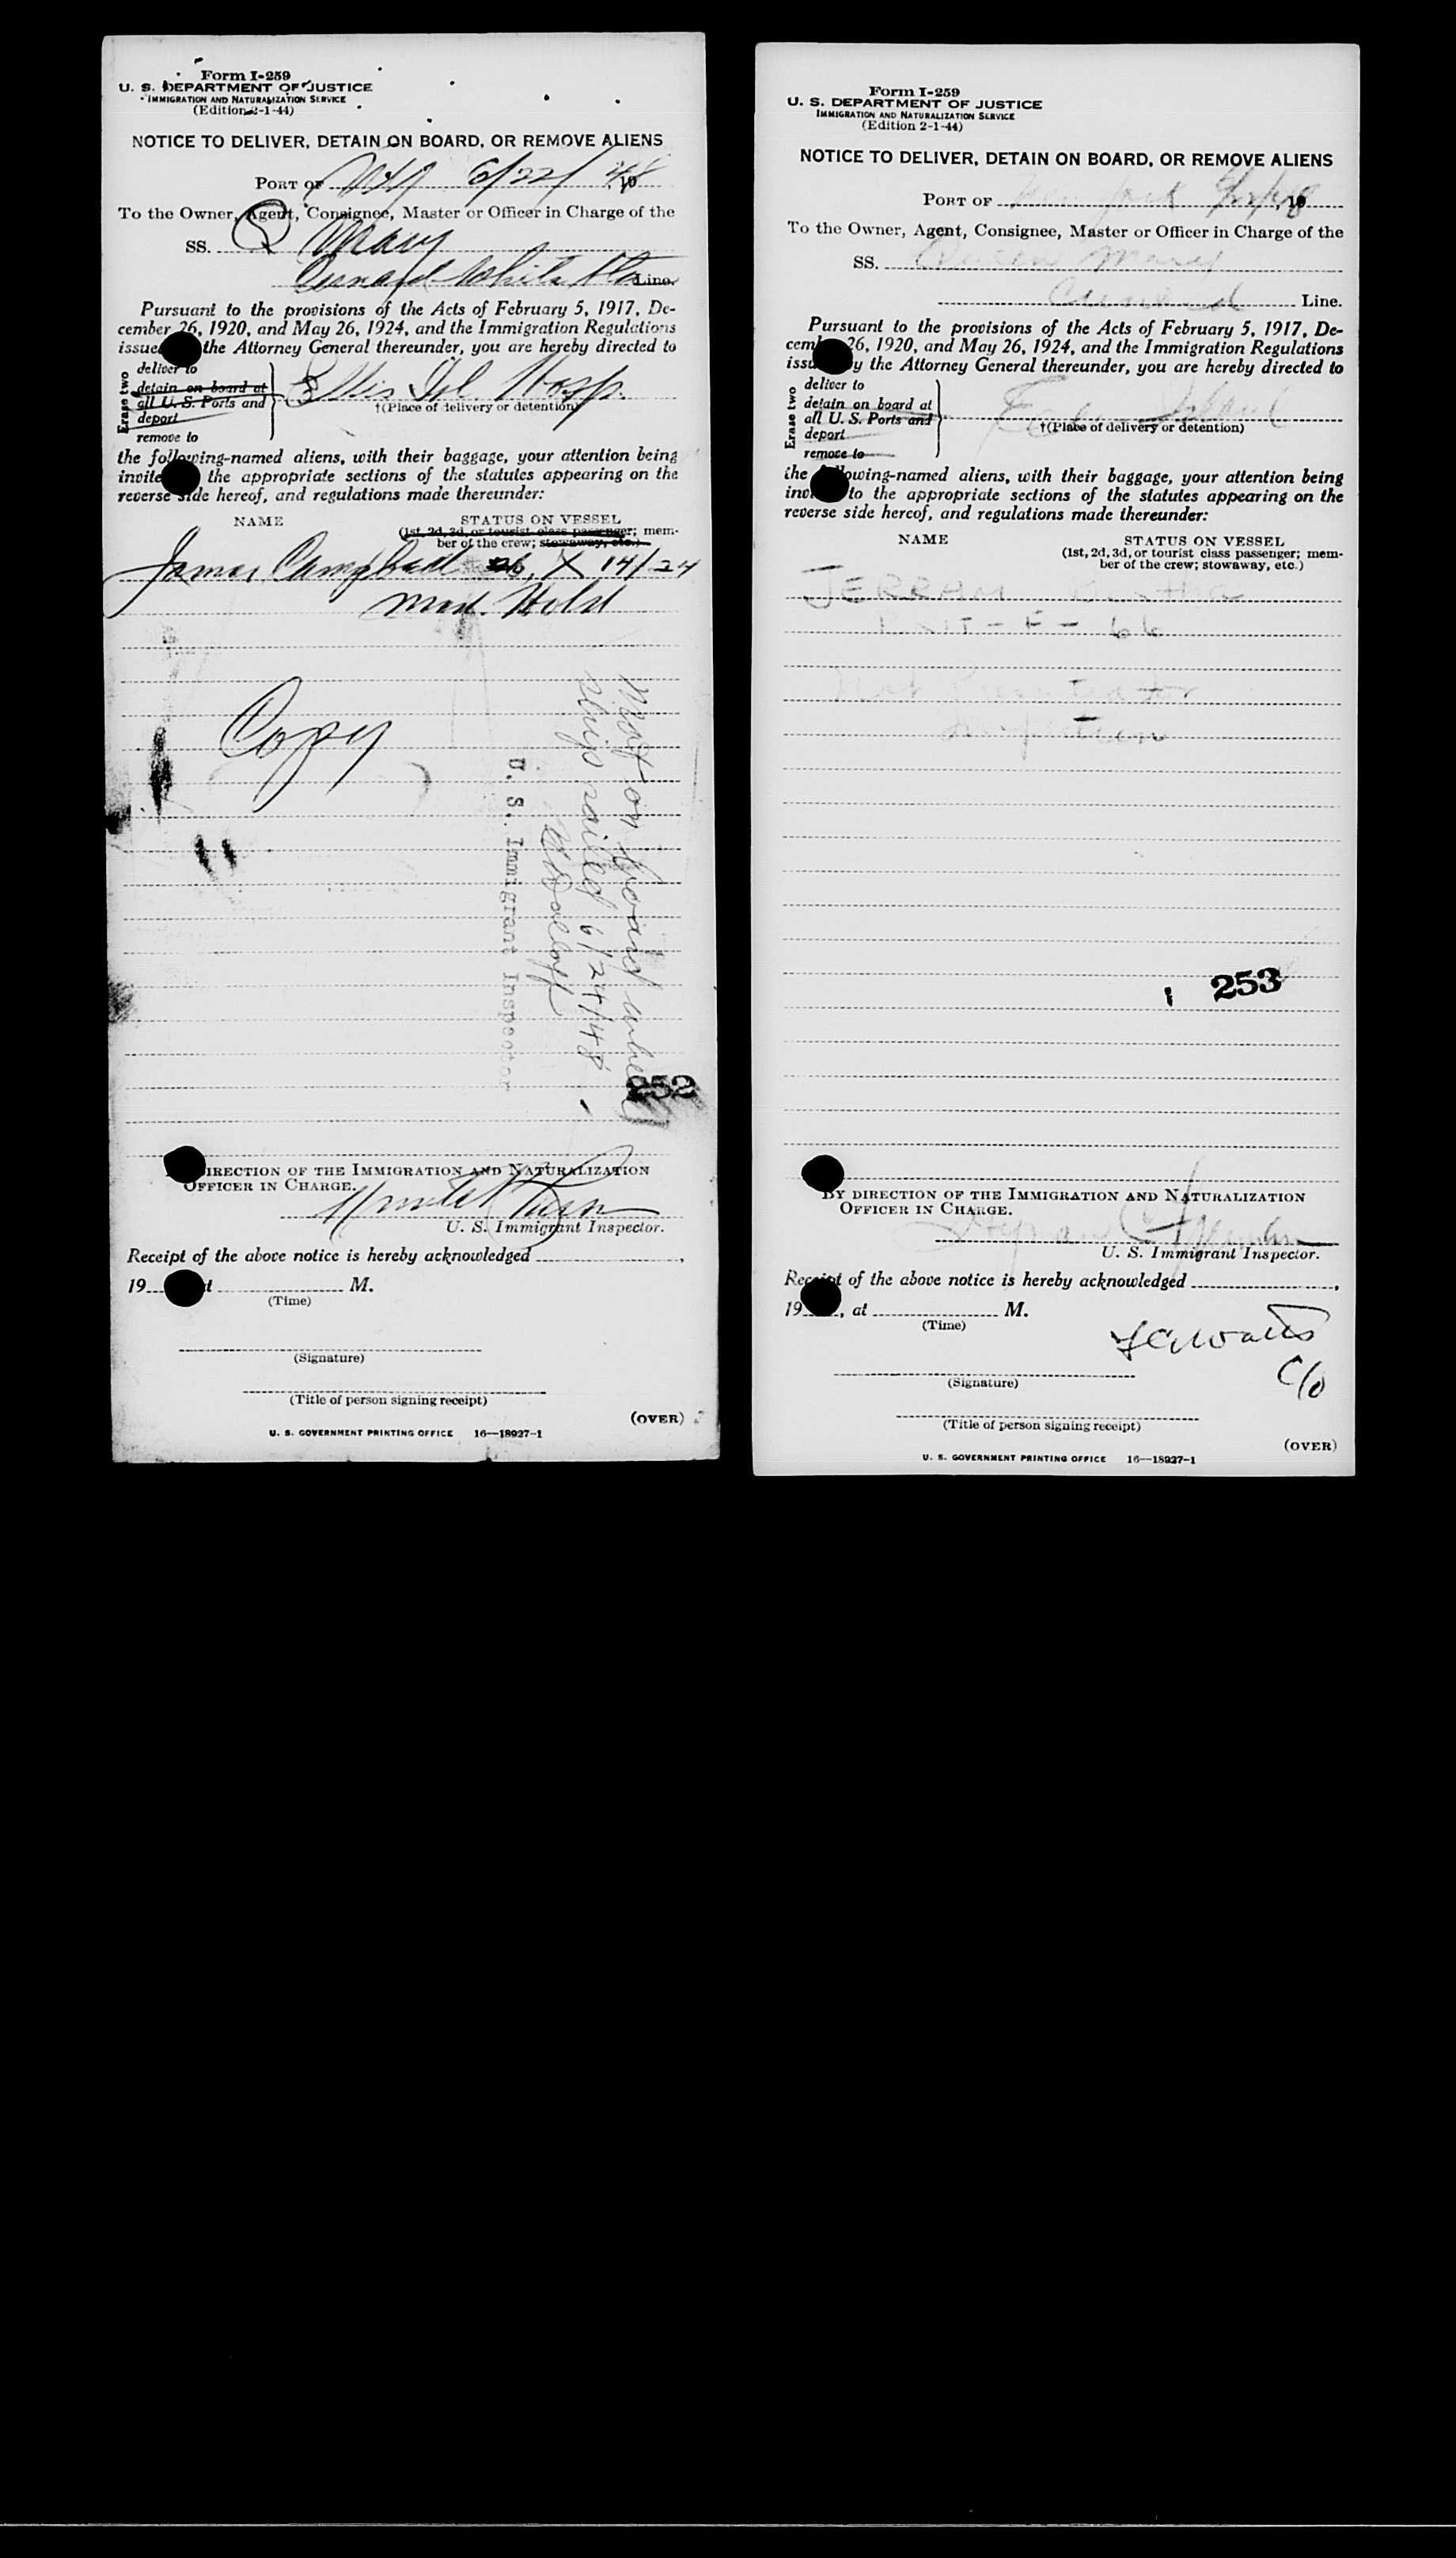 Form I-259
U. S. DEPARTMENT OF JUSTICE
IMMIGRATION AND NATURALIZATION SERVICE
(Edition 2-1-44)
NOTICE TO DELIVER, DETAIN ON BOARD, OR REMOVE ALIENS
PORT OF NY 6/22/48, 19
To the Owner, Agent, Consignee, Master or Officer in Charge of the
SS. Q Mary
Cunard White Star Line.
Pursuant to the provisions of the Acts of February 5, 1917, De-
cember 26, 1920, and May 26, 1924, and the Immigration Regulations
issue the Attorney General thereunder, you are hereby directed to
Erase two
deliver to
detain on board at
all U. S. Ports and
deport
remove to
Ellis Isl Hosp.
†(Place of delivery or detention)
the following-named aliens, with their baggage, your attention being
invite the appropriate sections of the statutes appearing on the
reverse side hereof, and regulations made thereunder:
NAME STATUS ON VESSEL
(1st, 2d, 3d, or tourist class passenger; mem-
ber of the crew; stowaway, etc.)
James Campbell X 14/24
Med. Hold
Copy
Not on board when
ship sailed 6/24/48
U. S. Immigrant Inspector
252
DIRECTION OF THE IMMIGRATION AND NATURALIZATION
OFFICER IN CHARGE.
U. S. Immigrant Inspector.
Receipt of the above notice is hereby acknowledged
19 at M.
(Time)
(Signature)
(Title of person signing receipt)
(OVER)
U. S. GOVERNMENT PRINTING OFFICE 16—18927-1
Form I-259
U. S. DEPARTMENT OF JUSTICE
IMMIGRATION AND NATURALIZATION SERVICE
(Edition 2-1-44)
NOTICE TO DELIVER, DETAIN ON BOARD, OR REMOVE ALIENS
PORT OF New York 19
To the Owner, Agent, Consignee, Master or Officer in Charge of the
SS. Queen Mary
Cunard Line.
Pursuant to the provisions of the Acts of February 5, 1917, De-
cember 26, 1920, and May 26, 1924, and the Immigration Regulations
issued by the Attorney General thereunder, you are hereby directed to
Erase two
deliver to
detain on board at
all U. S. Ports and
deport
remove to
Island
†(Place of delivery or detention)
the following-named aliens, with their baggage, your attention being
inv to the appropriate sections of the statutes appearing on the
reverse side hereof, and regulations made thereunder:
NAME STATUS ON VESSEL
(1st, 2d, 3d, or tourist class passenger; mem-
ber of the crew; stowaway, etc.)
JERRAM
- F - 66
253
BY DIRECTION OF THE IMMIGRATION AND NATURALIZATION
OFFICER IN CHARGE.
U. S. Immigrant Inspector.
Receipt of the above notice is hereby acknowledged
19, at M.
(Time)
C/o
(Signature)
(Title of person signing receipt)
(OVER)
U. S. GOVERNMENT PRINTING OFFICE 16—18927-1